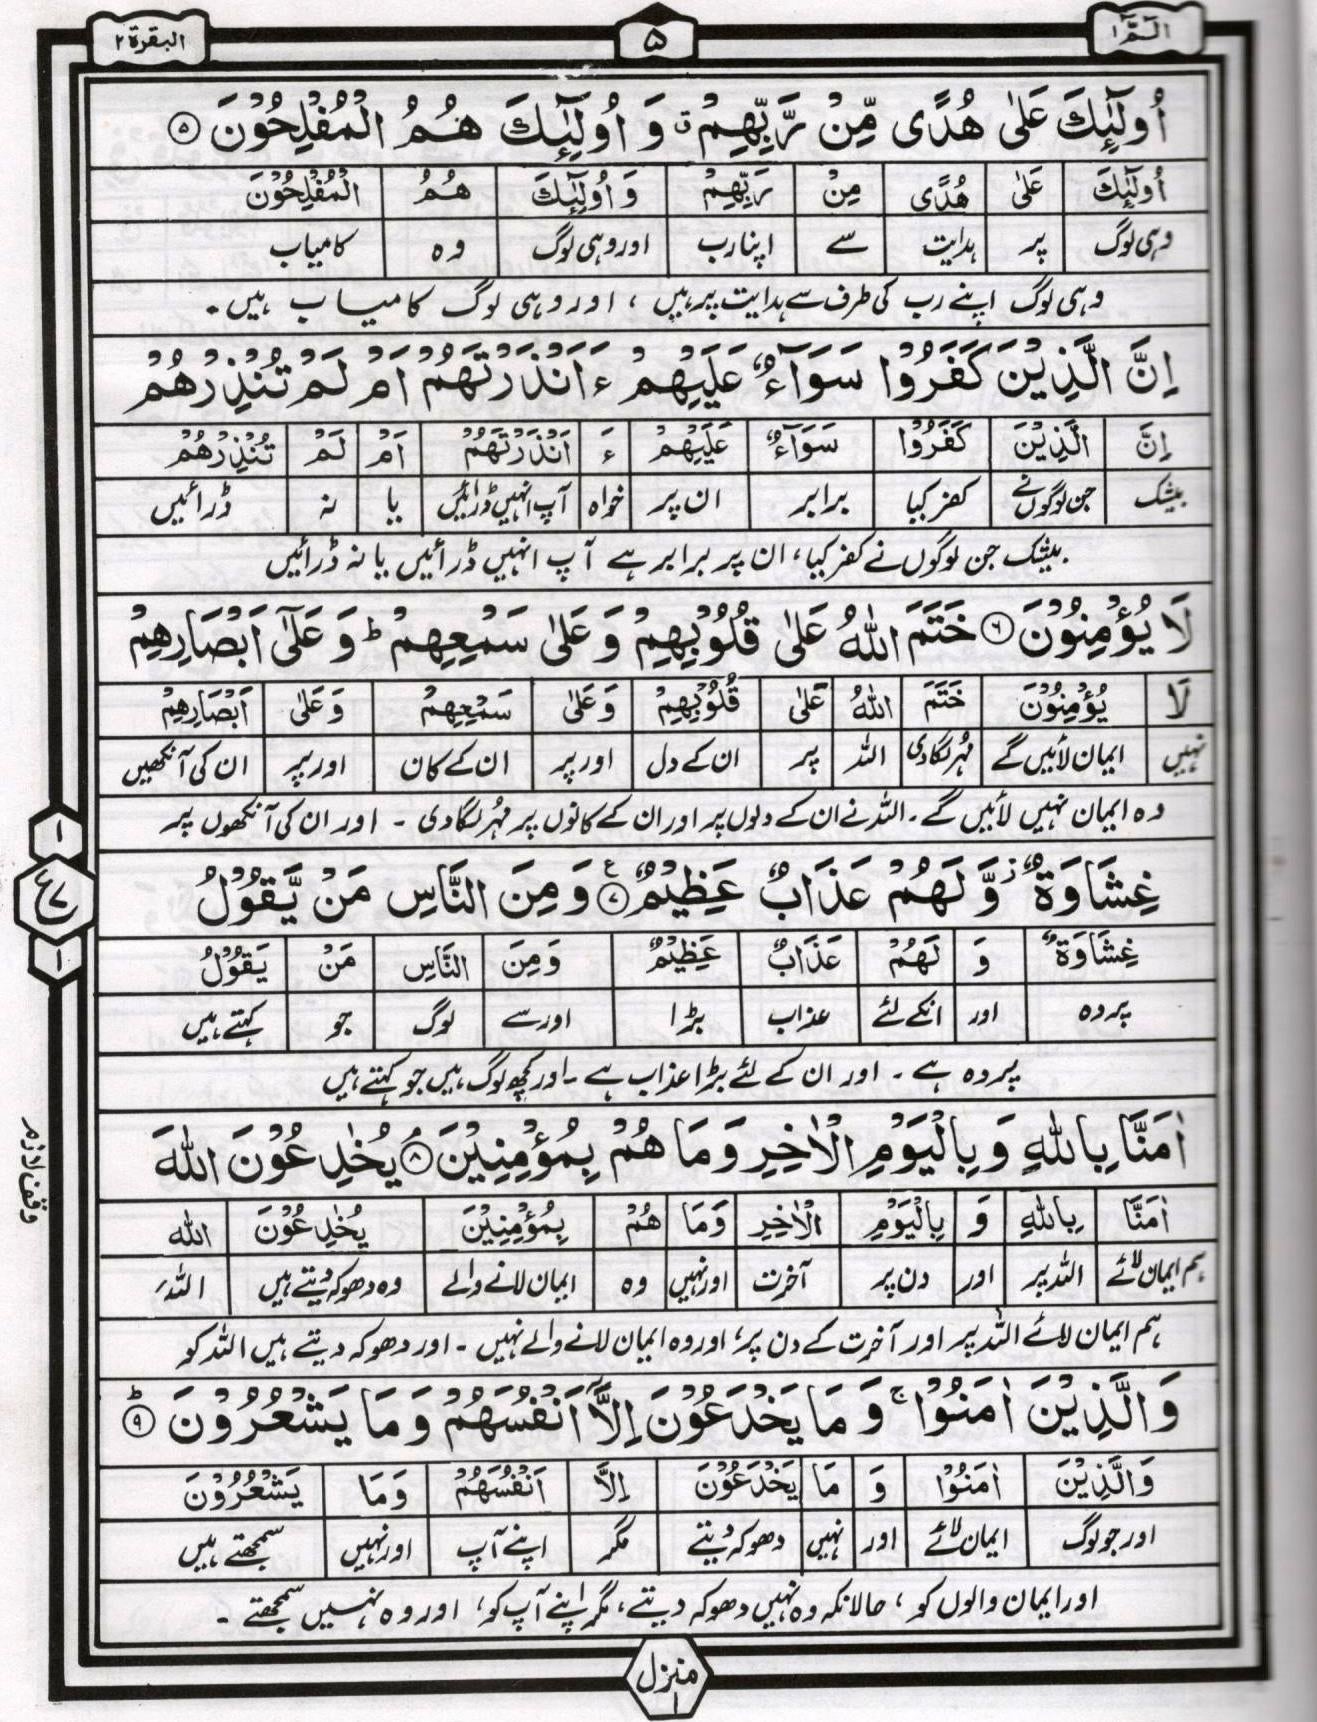 الٓمّٓ ۱
۵
البقرة ۲
اُولٰٓئِكَ عَلٰى هُدًى مِّنْ رَّبِّهِمْ ۗ وَ اُولٰٓئِكَ هُمُ الْمُفْلِحُوْنَ ۵
اُولٰٓئِكَ عَلٰى هُدًى مِنْ رَبِّهِمْ وَ اُولٰٓئِكَ هُمُ الْمُفْلِحُوْنَ
وہی لوگ پر ہدایت سے اپنا رب اور وہی لوگ وہ کامیاب
وہی لوگ اپنے رب کی طرف سے ہدایت پر ہیں ، اور وہی لوگ کامیاب ہیں۔
اِنَّ الَّذِيْنَ كَفَرُوْا سَوَآءٌ عَلَيْهِمْ ءَاَنْذَرْتَهُمْ اَمْ لَمْ تُنْذِرْهُمْ
اِنَّ الَّذِيْنَ كَفَرُوْا سَوَآءٌ عَلَيْهِمْ ءَ اَنْذَرْتَهُمْ اَمْ لَمْ تُنْذِرْهُمْ
بیشک جن لوگوں نے کفر کیا برابر ان پر خواہ آپ انہیں ڈرائیں یا نہ ڈرائیں
بیشک جن لوگوں نے کفر کیا، ان پر برابر ہے آپ انہیں ڈرائیں یا نہ ڈرائیں
لَا يُؤْمِنُوْنَ ۶ خَتَمَ اللّٰهُ عَلٰى قُلُوْبِهِمْ وَ عَلٰى سَمْعِهِمْ ؕ وَ عَلٰٓى اَبْصَارِهِمْ
لَا يُؤْمِنُوْنَ خَتَمَ اللّٰهُ عَلٰى قُلُوْبِهِمْ وَعَلٰى سَمْعِهِمْ وَعَلٰى اَبْصَارِهِمْ
نہیں ایمان لائیں گے مہر لگادی اللہ پر ان کے دل اور پر ان کے کان اور پر ان کی آنکھیں
وہ ایمان نہیں لائیں گے۔ اللہ نے ان کے دلوں پر اور ان کے کانوں پر مُہر لگادی ۔ اور ان کی آنکھوں پر
غِشَاوَةٌ ؗ وَّ لَهُمْ عَذَابٌ عَظِيْمٌ ۷ ع وَ مِنَ النَّاسِ مَنْ يَّقُوْلُ
غِشَاوَةٌ وَ لَهُمْ عَذَابٌ عَظِيْمٌ وَمِنَ النَّاسِ مَنْ يَقُوْلُ
پردہ اور انکے لئے عذاب بڑا اور سے لوگ جو کہتے ہیں
پردہ ہے ۔ اور ان کے لئے بڑا عذاب ہے ۔ اور کچھ لوگ ہیں جو کہتے ہیں
اٰمَنَّا بِاللّٰهِ وَ بِالْيَوْمِ الْاٰخِرِ وَ مَا هُمْ بِمُؤْمِنِيْنَ ۘ ۸ يُخٰدِعُوْنَ اللّٰهَ
اٰمَنَّا بِاللّٰهِ وَ بِالْيَوْمِ الْاٰخِرِ وَمَا هُمْ بِمُؤْمِنِيْنَ يُخٰدِعُوْنَ اللّٰهَ
ہم ایمان لائے اللہ پر اور دن پر آخرت اور نہیں وہ ایمان لانے والے وہ دھوکہ دیتے ہیں اللہ
ہم ایمان لائے اللہ پر اور آخرت کے دن پر، اور وہ ایمان لانے والے نہیں ۔ اور دھوکہ دیتے ہیں اللہ کو
وَالَّذِيْنَ اٰمَنُوْا ۚ وَ مَا يَخْدَعُوْنَ اِلَّآ اَنْفُسَهُمْ وَ مَا يَشْعُرُوْنَ ؕ ۹
وَالَّذِيْنَ اٰمَنُوْا وَ مَا يَخْدَعُوْنَ اِلَّا اَنْفُسَهُمْ وَمَا يَشْعُرُوْنَ
اور جو لوگ ایمان لائے اور نہیں دھوکہ دیتے مگر اپنے آپ اور نہیں سمجھتے ہیں
اور ایمان والوں کو، حالانکہ وہ نہیں دھوکہ دیتے، مگر اپنے آپ کو، اور وہ نہیں سمجھتے ۔
۱
ع ۷
۱
وقف لازم
منزل ۱